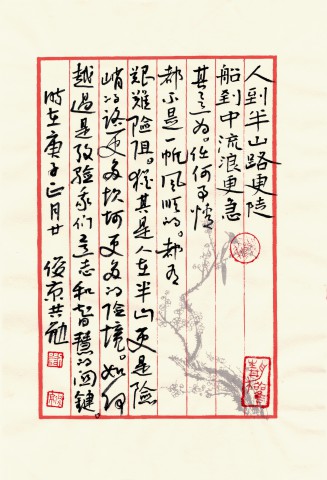 人到半山路更陡
船到中流浪更急
其意为。任何事情
都不是一帆风顺的。都有
艰难险阻。犹其是人在半山更是险
峭的路更多坎坷更多的险境。如何
越过是考验我们意志和智慧的关键。
时在庚子正月廿
俊京共勉